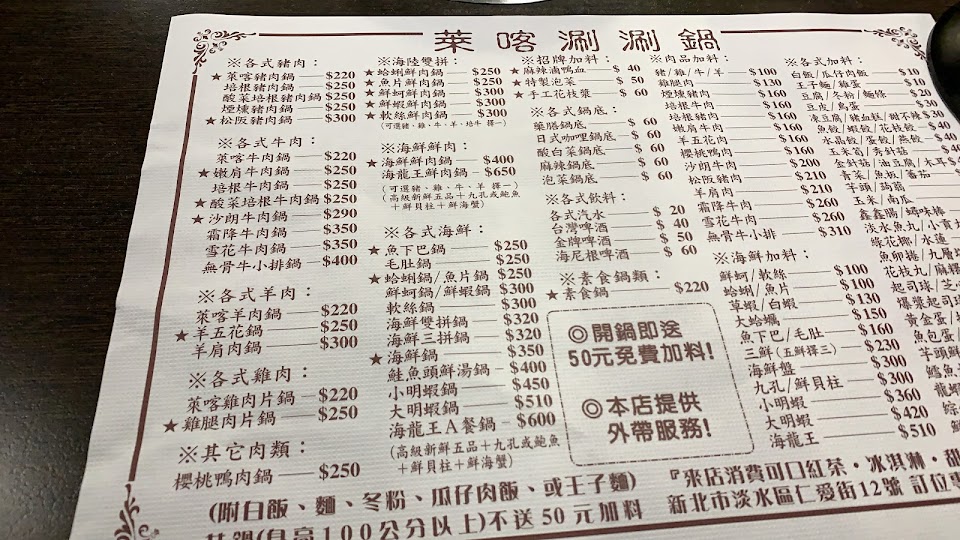 萊喀涮涮鍋
※各式豬肉：
★萊喀豬肉鍋 $220
培根豬肉鍋 $250
酸菜培根豬肉鍋 $250
煙燻豬肉鍋 $250
★松阪豬肉鍋 $300
※各式牛肉：
萊喀牛肉鍋 $220
★嫩肩牛肉鍋 $250
培根牛肉鍋 $250
★酸菜培根牛肉鍋 $250
★沙朗牛肉鍋 $290
霜降牛肉鍋 $350
雪花牛肉鍋 $350
無骨牛小排鍋 $400
※各式羊肉：
萊喀羊肉鍋 $220
★羊五花鍋 $250
羊肩肉鍋 $300
※各式雞肉：
萊喀雞肉片鍋 $220
★雞腿肉片鍋 $250
※其它肉類：
櫻桃鴨肉鍋 $250
※海陸雙拼：
★蛤蜊鮮肉鍋 $250
★魚片鮮肉鍋 $250
★鮮蚵鮮肉鍋 $300
★鮮蝦鮮肉鍋 $300
★軟絲鮮肉鍋 $300
(可選豬、雞、牛、羊、培牛 擇一)
※海鮮鮮肉：
★海鮮鮮肉鍋 $400
海龍王鮮肉鍋 $650
(可選豬、雞、牛、羊 擇一)
(高級新鮮五品＋九孔或鮑魚
＋鮮貝柱＋鮮海蟹)
※各式海鮮：
★魚下巴鍋 $250
毛肚鍋 $250
★蛤蜊鍋/魚片鍋 $250
鮮蚵鍋/鮮蝦鍋 $300
軟絲鍋 $300
海鮮雙拼鍋 $320
海鮮三拼鍋 $320
★海鮮鍋 $350
鮭魚頭鮮湯鍋 $400
小明蝦鍋 $450
大明蝦鍋 $510
海龍王A餐鍋 $600
(高級新鮮五品＋九孔或鮑魚
＋鮮貝柱＋鮮海蟹)
※招牌加料：
★麻辣滷鴨血 $ 40
★特製泡菜 $ 50
★手工花枝漿 $ 60
※各式鍋底：
藥膳鍋底 $ 60
日式咖哩鍋底 $ 60
酸白菜鍋底 $ 60
麻辣鍋底 $ 60
泡菜鍋底 $ 60
※各式飲料：
各式汽水 $ 20
台灣啤酒 $ 40
金牌啤酒 $ 50
海尼根啤酒 $ 60
※素食鍋類：
★素食鍋 $220
◎開鍋即送
50元免費加料!
◎本店提供
外帶服務!
※肉品加料：
豬/雞/牛/羊 $100
雞腿肉 $130
煙燻豬肉 $160
培根牛肉 $160
培根豬肉 $160
嫩肩牛肉 $160
羊五花肉 $160
櫻桃鴨肉 $160
沙朗牛肉 $200
松阪豬肉 $210
羊肩肉 $210
霜降牛肉 $260
雪花牛肉 $260
無骨牛小排 $310
※海鮮加料：
鮮蚵/軟絲 $100
蛤蜊/魚片 $100
草蝦/白蝦 $130
大蛤蠣 $150
魚下巴/毛肚 $160
三鮮(五鮮擇三) $230
海鮮盤 $300
九孔/鮮貝柱 $300
小明蝦 $360
大明蝦 $420
海龍王 $510
※各式加料：
白飯/瓜仔肉飯 $10
王子麵/雞蛋 $10
豆腐/冬粉/麵條 $20
豆皮/鳥蛋 $30
凍豆腐/豬血糕/甜不辣 $30
魚餃/蝦餃/花枝餃
水晶餃/蛋餃/燕餃
玉米筍/秀針菇
金針菇/油豆腐/木耳
青菜/魚板/蕃茄
芋頭/蒟蒻
玉米/南瓜
鑫鑫腸/蟳味棒
淡水魚丸/小貢丸
綠花椰/水蓮
魚卵捲/九層
花枝丸/麻糬
起司球/芝
爆漿起司
黃金蛋/
魚包蛋/
芋頭鮮
鱈魚
龍蝦
(附白飯、麵、冬粉、瓜仔肉飯、或王子麵)
共鍋(身高100公分以上)不送50元加料
『來店消費可口紅茶・冰淇淋・甜
新北市淡水區仁愛街12號 訂位專